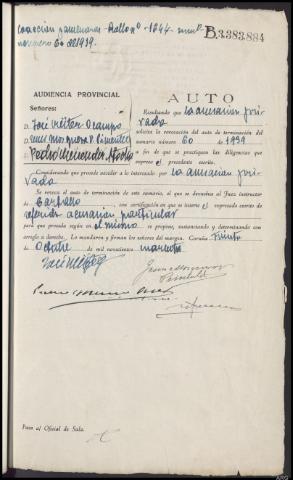 nº 1944
número 60 de 1939.
B.3.383,884
AUDIENCIA PROVINCIAL
Señores:
D. José Víctor Ocampo
D. Luis
D. Pedro
AUTO
Resultando que la acusación pri-
vada
solicita la revocación del auto de terminación del
sumario número 60 de 1939
a fin de que se practiquen las diligencias que
expresa el precedente escrito.
Considerando que procede acceder a lo interesado por la acusación pri-
vada
Se revoca el auto de terminación de este sumario, al que se devuelva al Juez instructor
de Carballo con certificación en que se inserte el expresado escrito de
referida acusación particular
para que proceda según en el mismo se propone, sustanciando y determinando con
arreglo a derecho. Lo mandaron y firman los señores del margen. Coruña
Octubre de mil novecientos cuarenta
Pase al Oficial de Sala.